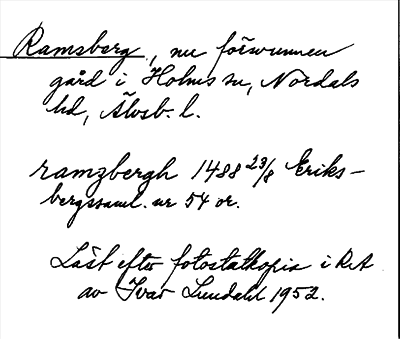 Ramsberg, nu försvunnen
gård i Holms sn, Nordals
hd, Älvsb. l.
ramzbergh 1488 23/8 Eriks-
bergssaml. nr 54 or.
Läst efter fotostatkopia i RA
av Ivar Lundahl 1952.